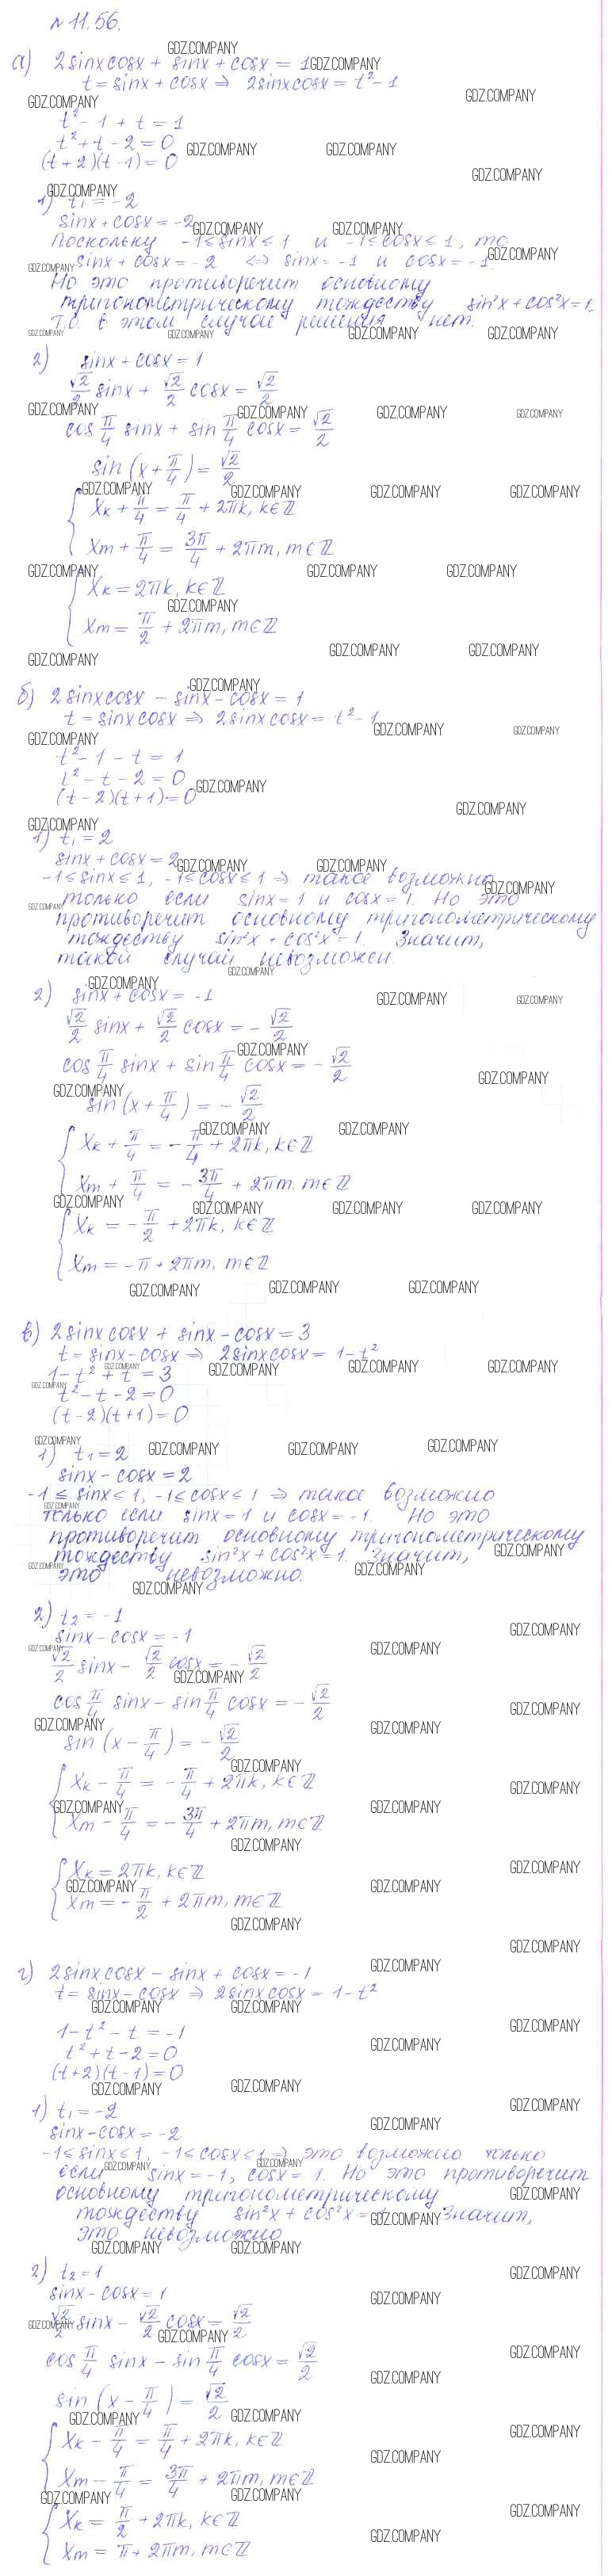 № 11.56.
а) 2sinxcosx + sinx + cosx = 1
t = sinx + cosx ⇒ 2sinxcosx = t² - 1
t² - 1 + t = 1
t² + t - 2 = 0
(t + 2)(t - 1) = 0
1) t₁ = -2
sinx + cosx = -2
Поскольку -1 ≤ sinx ≤ 1 и -1 ≤ cosx ≤ 1, то
sinx + cosx = -2 ⇔ sinx = -1 и cosx = -1.
Но это противоречит основному
тригонометрическому тождеству sin²x + cos²x = 1.
Т.о. в этом случае решения нет.
2) sinx + cosx = 1
√2/2 sinx + √2/2 cosx = √2/2
cos π/4 sinx + sin π/4 cosx = √2/2
sin (x + π/4) = √2/2
{ Xk + π/4 = π/4 + 2πk, k∈ℤ
Xm + π/4 = 3π/4 + 2πm, m∈ℤ
{ Xk = 2πk, k∈ℤ
Xm = π/2 + 2πm, m∈ℤ
б) 2sinxcosx - sinx - cosx = 1
t = sinxcosx ⇒ 2sinxcosx = t² - 1
t² - 1 - t = 1
t² - t - 2 = 0
(t - 2)(t + 1) = 0
1) t₁ = 2
sinx + cosx = 2
-1 ≤ sinx ≤ 1, -1 ≤ cosx ≤ 1 ⇒ такое возможно
только если sinx = 1 и cosx = 1. Но это
противоречит основному тригонометрическому
тождеству sin²x + cos²x = 1. Значит,
такой случай невозможен.
2) sinx + cosx = -1
√2/2 sinx + √2/2 cosx = - √2/2
cos π/4 sinx + sin π/4 cosx = - √2/2
sin (x + π/4) = - √2/2
{ Xk + π/4 = - π/4 + 2πk, k∈ℤ
Xm + π/4 = - 3π/4 + 2πm, m∈ℤ
{ Xk = - π/2 + 2πk, k∈ℤ
Xm = -π + 2πm, m∈ℤ
в) 2sinxcosx + sinx - cosx = 3
t = sinx - cosx ⇒ 2sinxcosx = 1 - t²
1 - t² + t = 3
t² - t - 2 = 0
(t - 2)(t + 1) = 0
1) t₁ = 2
sinx - cosx = 2
-1 ≤ sinx ≤ 1, -1 ≤ cosx ≤ 1 ⇒ такое возможно
только если sinx = 1 и cosx = -1. Но это
противоречит основному тригонометрическому
тождеству sin²x + cos²x = 1. Значит,
это невозможно.
2) t₂ = -1
sinx - cosx = -1
√2/2 sinx - √2/2 cosx = - √2/2
cos π/4 sinx - sin π/4 cosx = - √2/2
sin (x - π/4) = - √2/2
{ Xk - π/4 = - π/4 + 2πk, k∈ℤ
Xm - π/4 = - 3π/4 + 2πm, m∈ℤ
{ Xk = 2πk, k∈ℤ
Xm = - π/2 + 2πm, m∈ℤ
г) 2sinxcosx - sinx + cosx = -1
t = sinx - cosx ⇒ 2sinxcosx = 1 - t²
1 - t² - t = -1
t² + t - 2 = 0
(t + 2)(t - 1) = 0
1) t₁ = -2
sinx - cosx = -2
-1 ≤ sinx ≤ 1, -1 ≤ cosx ≤ 1 ⇒ это возможно только
если sinx = -1, cosx = 1. Но это противоречит
основному тригонометрическому
тождеству sin²x + cos²x = 1. Значит,
это невозможно
2) t₂ = 1
sinx - cosx = 1
√2/2 sinx - √2/2 cosx = √2/2
cos π/4 sinx - sin π/4 cosx = √2/2
sin (x - π/4) = √2/2
{ Xk - π/4 = π/4 + 2πk, k∈ℤ
Xm - π/4 = 3π/4 + 2πm, m∈ℤ
{ Xk = π/2 + 2πk, k∈ℤ
Xm = π + 2πm, m∈ℤ
GDZ.COMPANY